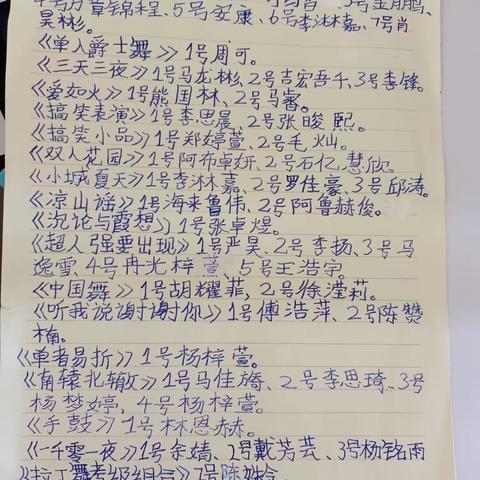 4号方章锦程、5号安康、6号李沐嘉、7号肖
吴彬。
《单人爵士舞》1号周可。
《三天三夜》1号马龙彬、2号吉宏吾千、3号李锋。
《爱如火》1号熊国林、2号马睿。
《搞笑表演》1号李思晨、2号张晙熙。
《搞笑小品》1号郑婷萱、2号毛灿。
《双人花园》1号阿布卓妍、2号石亿慧欣。
《小城夏天》1号李沐嘉、2号罗佳豪、3号邱涛。
《凉山谣》1号海来鲁伟、2号阿鲁赫俊。
《沉沦与霞想》1号张卓煜。
《超人强要出现》1号严昊、2号李扬、3号马
逸雪、4号冉光梓萱、5号王浩宇。
《中国舞》1号胡耀菲，2号徐滢莉。
《听我说谢谢你》1号傅浩萍、2号陈赞
楠。
《单者易折》1号杨梓萱。
《南辕北辙》1号马佳旖、2号李思琦、3号
杨梦婷，4号杨梓萱。
《手鼓》1号林恩赫。
《一千零一夜》1号余婧、2号戴芳芸、3号杨铭雨
《拉丁舞考级组合》1号陈姝